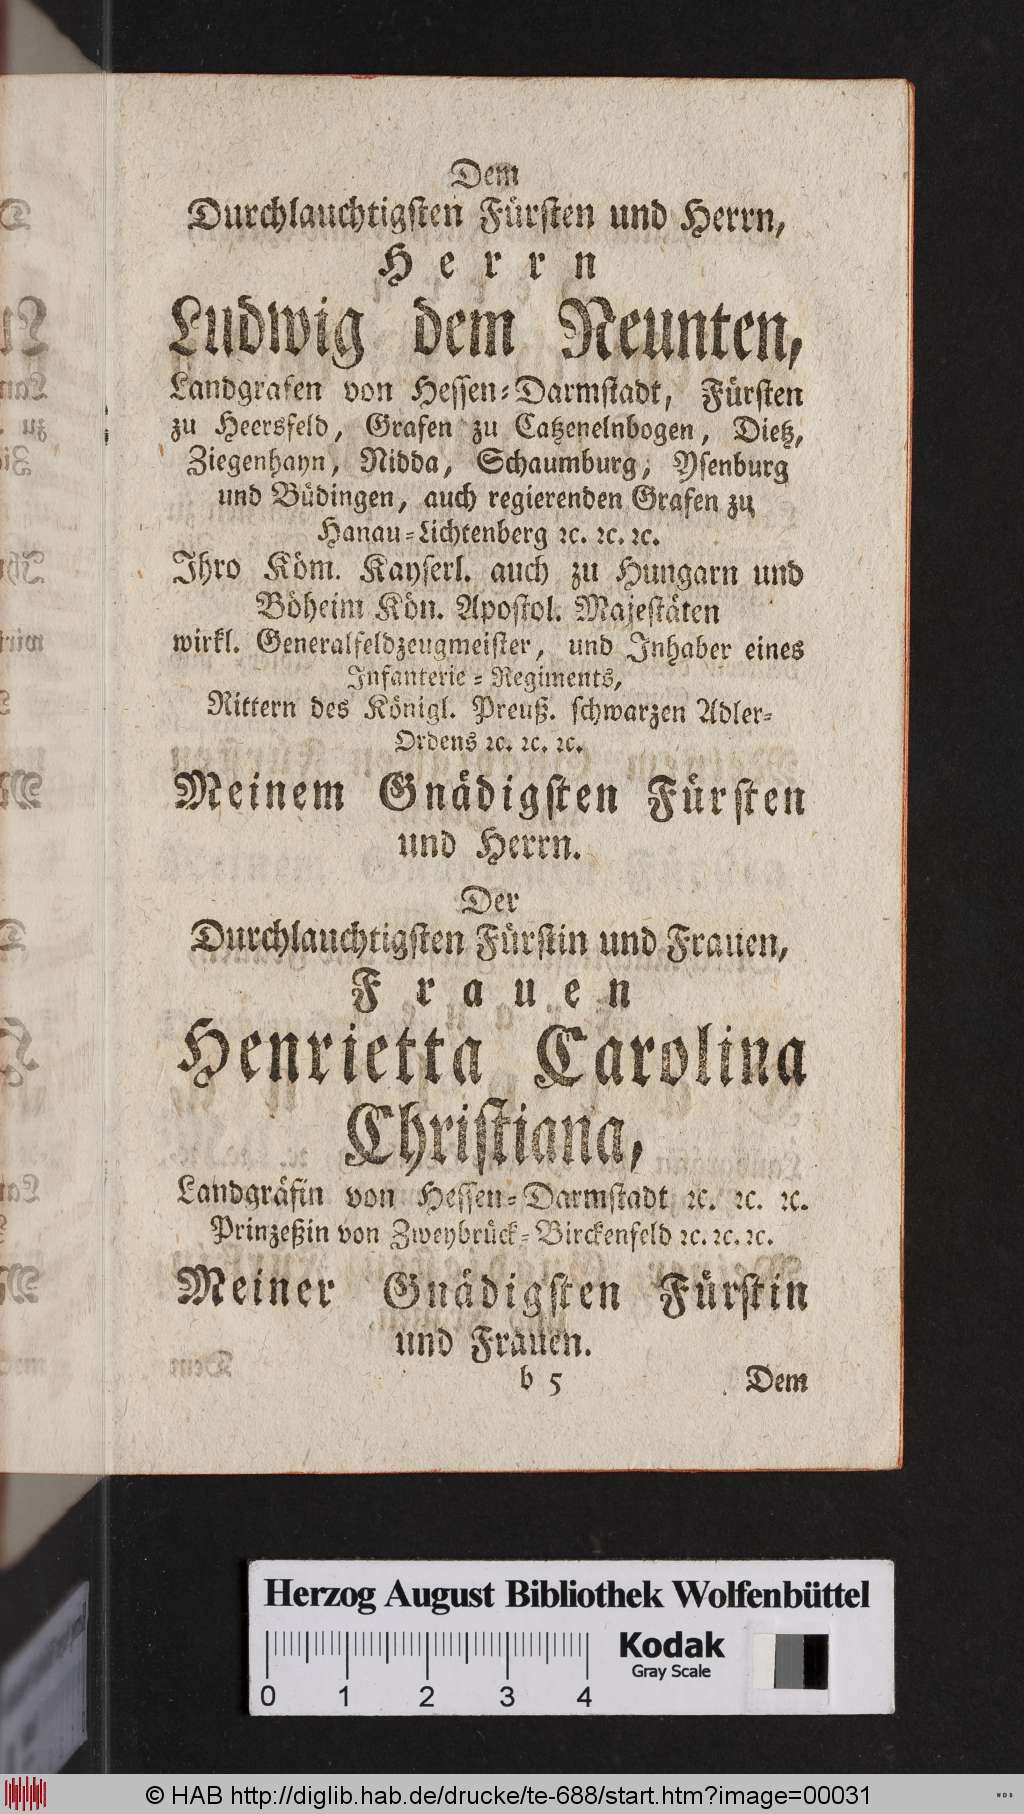 Dem
Durchlauchtigſten Fürſten und Herrn,
Herrn
Ludwig dem Neunten,
Landgrafen von Heſſen-Darmſtadt, Fürſten
zu Heersfeld, Grafen zu Catzenelnbogen, Dietz,
Ziegenhayn, Nidda, Schaumburg, Yſenburg
und Büdingen, auch regierenden Grafen zu
Hanau-Lichtenberg ꝛc. ꝛc. ꝛc.
Ihro Köm. Kayſerl. auch zu Hungarn und
Böheim Kön. Apoſtol. Majeſtäten
wirkl. Generalfeldzeugmeiſter, und Inhaber eines
Infanterie-Regiments,
Rittern des Königl. Preuß. ſchwarzen Adler-
Ordens ꝛc. ꝛc. ꝛc.
Meinem Gnädigſten Fürſten
und Herrn.
Der
Durchlauchtigſten Fürſtin und Frauen,
Frauen
Henrietta Carolina
Chriſtiana,
Landgräfin von Heſſen-Darmſtadt ꝛc. ꝛc. ꝛc.
Prinzeßin von Zweybrück-Birckenfeld ꝛc. ꝛc. ꝛc.
Meiner Gnädigſten Fürſtin
und Frauen.
b 5 Dem
Herzog August Bibliothek Wolfenbüttel
Kodak
Gray Scale
0 1 2 3 4
© HAB http://diglib.hab.de/drucke/te-688/start.htm?image=00031